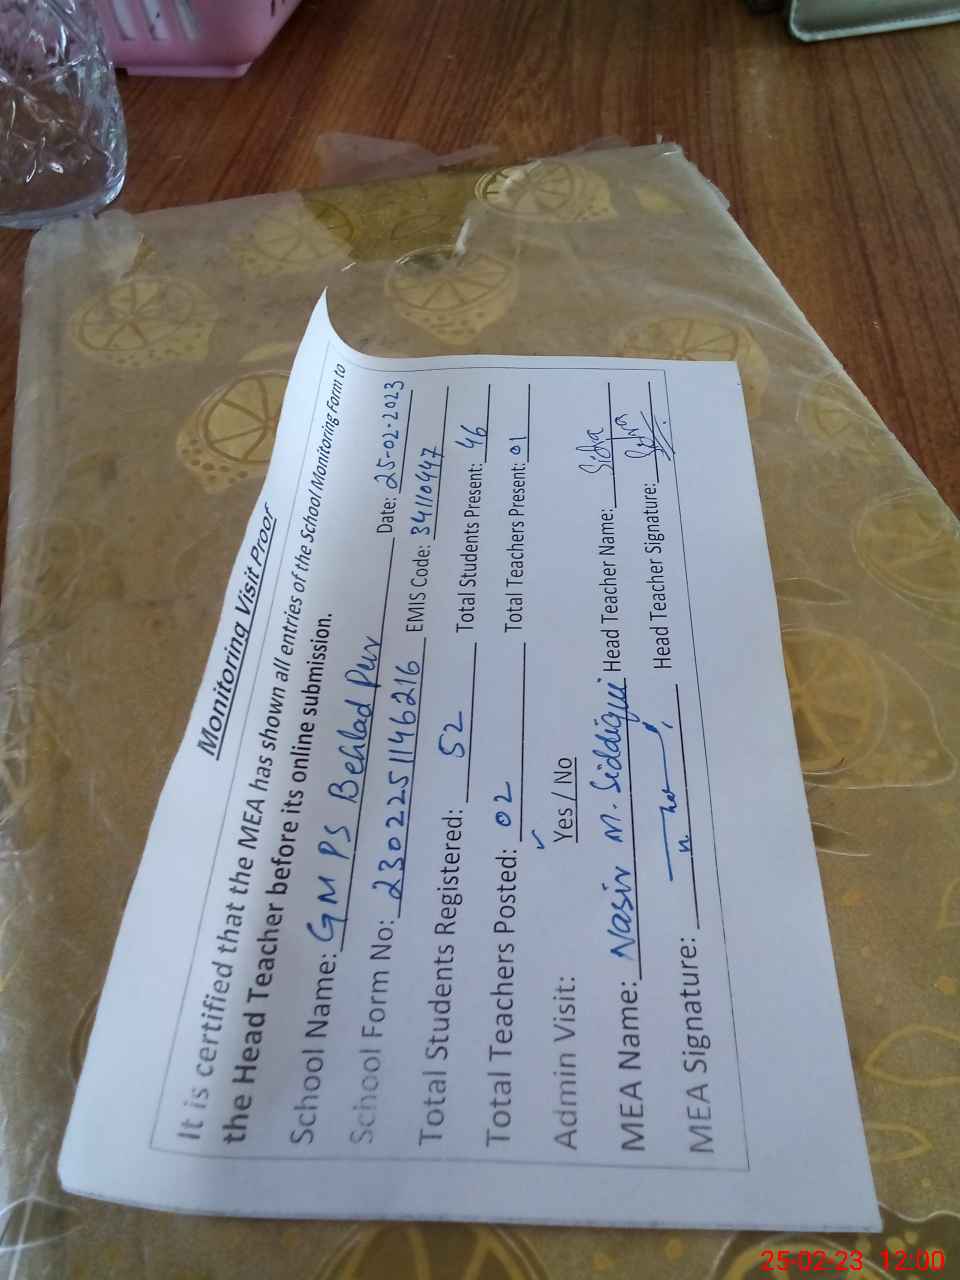 Monitoring Visit Proof
It is certified that the MEA has shown all entries of the School Monitoring Form to
the Head Teacher before its online submission.
School Name: GMPS Behlad Pur Date: 25-02-2023
School Form No: 230225114 6216 EMIS Code: 34110447
Total Students Registered: 52 Total Students Present: 46
Total Teachers Posted: 02 Total Teachers Present: 01
Admin Visit: Yes / No
MEA Name: Nasir M. Siddiqui Head Teacher Name: Sidra
MEA Signature: Head Teacher Signature: Sidra
25-02-23 12:00